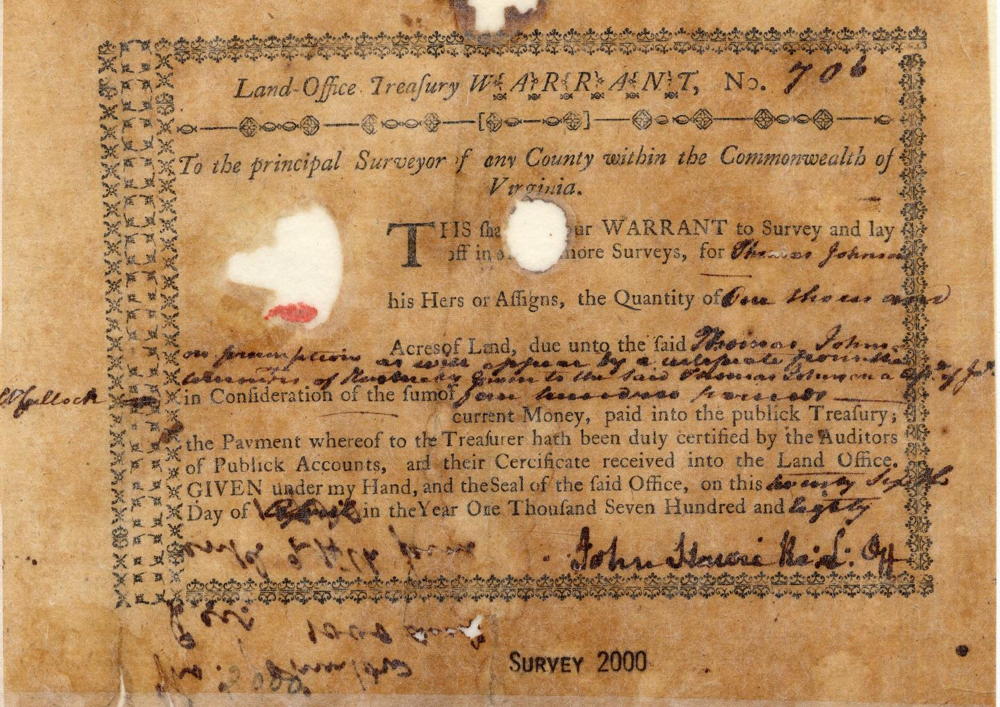 Land-Office Treasury WARRANT, No. 706
To the principal Surveyor of any County within the Commonwealth of
Virginia.
THIS ſha ur WARRANT to Survey and lay
off in more Surveys, for Thomas Johnson
his Hers or Aſſigns, the Quantity of One thousand
Acres of Land, due unto the ſaid Thomas Johns
on preemption as will appear by a certificate from the
of Kentucky given to the said Thomas Johnson a
in Conſideration of the ſum of four hundred pounds
current Money, paid into the publick Treaſury;
the Payment whereof to the Treaſurer hath been duly certified by the Auditors
of Publick Accounts, and their Cercificate received into the Land Office.
GIVEN under my Hand, and the Seal of the ſaid Office, on this twenty Sixth
Day of April in the Year One Thouſand Seven Hundred and Eighty
John Off
SURVEY 2000